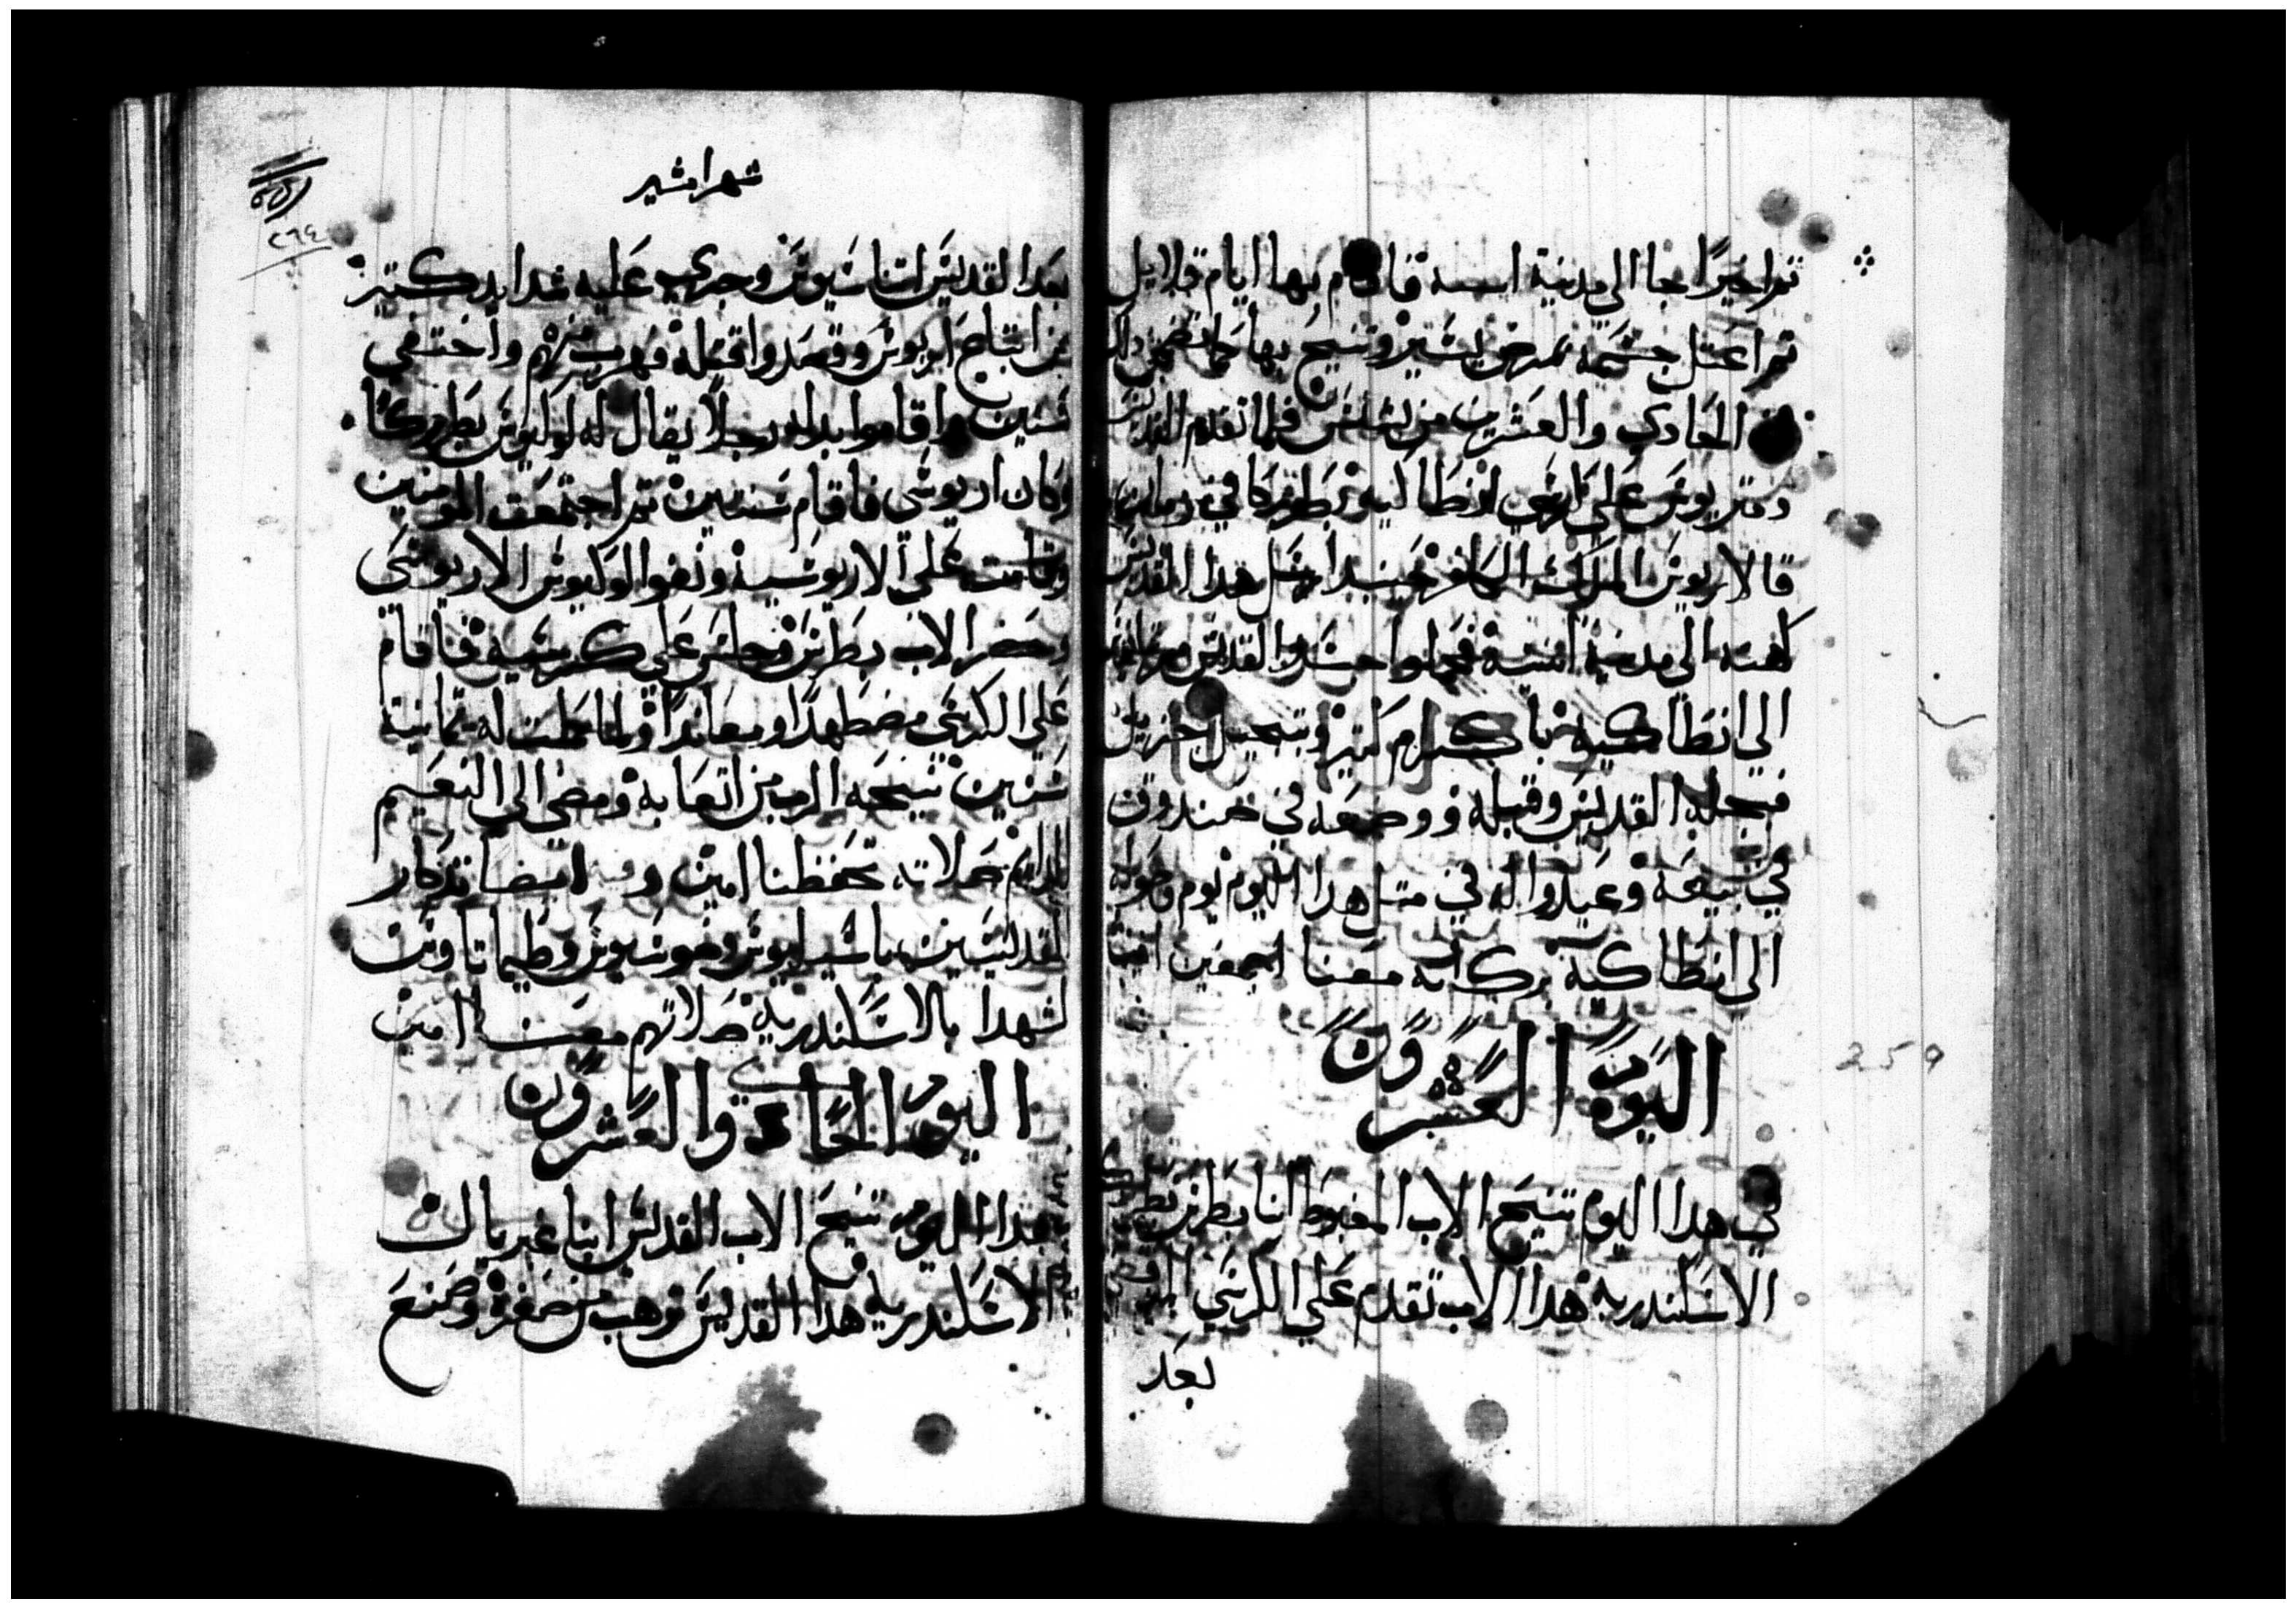 ثم اخيرًا جا الى مدينة افسسة فاقام بها ايام قلايل
ثم اعتل جسمه بمرض يسير وتنيح بها كما تضمن دلك
الحادي والعشرين من بشنس فلما تقدم القديس
دمتريوس على كرسي انطاكيه بطريركا في زمان
قالاريوس الملك الكافر حينيد ارسل هدا القديس
كهنه الى مدينة افسسة فحملوا جسد القديس
الى انطاكيه باكرام كثير وتبجيل جزيل
فحمله القديس وقبله ووضعه في صندوق
في بيعة وعيدوا له في مثل هدا اليوم يوم وصوله
الى انطاكيه بركاته معنا اجمعين امين
اليوم العشرون
في هدا اليوم تنيح الاب المغبوط انبا بطرس بطريرك
الاسكندريه هدا الاب تقدم على الكرسي المرقسي
بعد
259
شهر امشير
٢٦٤
بعد القديس اتناسيوس وجرى عليه شدايد كتيره
من اتباع اريوس وقصدوا قتله فهرب منهم واختفى
سنتين واقاموا بداله رجلاً يقال له لوكيوس بطريركًا
وكان اريوسى فاقام سنتين ثم اجتمعت المومنين
وقامت على الاريوسية ونفوا لوكيوس الاريوسى
وحضر الاب بطرس وجلس على كرسيه فاقام
على الكرسي مضطهدًا ومعاندًا ولما كملت له تمانية
سنين نيحه الرب من اتعابه ومضى الى النعيم
الدايم صلاته تحفظنا امين وفيه ايضا تدكار
القديسين باسيليوس وتاوضوسيوس وطيماتاوس
الشهدا بالاسكندريه صلاتهم معنا امين
اليوم الحادي والعشرون
بهدا اليوم تنيح الاب القديس انبا غبريال
الاسكندريه هدا القديس ترهب من صغره وصنع